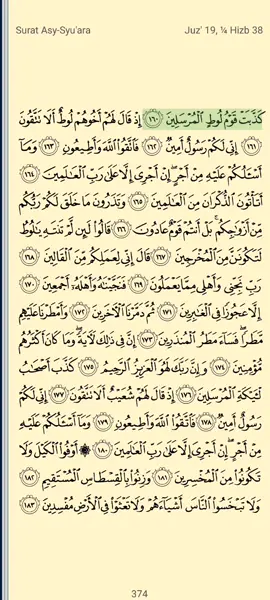 Surat Asy-Syu'ara
Juz' 19, ¼ Hizb 38
كَذَّبَتْ قَوْمُ لُوطٍ ٱلْمُرْسَلِينَ ١٦٠ إِذْ قَالَ لَهُمْ أَخُوهُمْ لُوطٌ أَلَا تَتَّقُونَ
١٦١ إِنِّى لَكُمْ رَسُولٌ أَمِينٌ ١٦٢ فَٱتَّقُوا۟ ٱللَّهَ وَأَطِيعُونِ ١٦٣ وَمَآ
أَسْـَٔلُكُمْ عَلَيْهِ مِنْ أَجْرٍ ۖ إِنْ أَجْرِىَ إِلَّا عَلَىٰ رَبِّ ٱلْعَـٰلَمِينَ ١٦٤
أَتَأْتُونَ ٱلذُّكْرَانَ مِنَ ٱلْعَـٰلَمِينَ ١٦٥ وَتَذَرُونَ مَا خَلَقَ لَكُمْ رَبُّكُم
مِّنْ أَزْوَٰجِكُم ۚ بَلْ أَنتُمْ قَوْمٌ عَادُونَ ١٦٦ قَالُوا۟ لَئِن لَّمْ تَنتَهِ يَـٰلُوطُ
لَتَكُونَنَّ مِنَ ٱلْمُخْرَجِينَ ١٦٧ قَالَ إِنِّى لِعَمَلِكُم مِّنَ ٱلْقَالِينَ ١٦٨
رَبِّ نَجِّنِى وَأَهْلِى مِمَّا يَعْمَلُونَ ١٦٩ فَنَجَّيْنَـٰهُ وَأَهْلَهُۥٓ أَجْمَعِينَ ١٧٠
إِلَّا عَجُوزًا فِى ٱلْغَـٰبِرِينَ ١٧١ ثُمَّ دَمَّرْنَا ٱلْـَٔاخَرِينَ ١٧٢ وَأَمْطَرْنَا عَلَيْهِم
مَّطَرًا ۖ فَسَآءَ مَطَرُ ٱلْمُنذَرِينَ ١٧٣ إِنَّ فِى ذَٰلِكَ لَـَٔايَةً ۖ وَمَا كَانَ أَكْثَرُهُم
مُّؤْمِنِينَ ١٧٤ وَإِنَّ رَبَّكَ لَهُوَ ٱلْعَزِيزُ ٱلرَّحِيمُ ١٧٥ كَذَّبَ أَصْحَـٰبُ
لْـَٔيْكَةِ ٱلْمُرْسَلِينَ ١٧٦ إِذْ قَالَ لَهُمْ شُعَيْبٌ أَلَا تَتَّقُونَ ١٧٧ إِنِّى لَكُمْ
رَسُولٌ أَمِينٌ ١٧٨ فَٱتَّقُوا۟ ٱللَّهَ وَأَطِيعُونِ ١٧٩ وَمَآ أَسْـَٔلُكُمْ عَلَيْهِ
مِنْ أَجْرٍ ۖ إِنْ أَجْرِىَ إِلَّا عَلَىٰ رَبِّ ٱلْعَـٰلَمِينَ ١٨٠ ۞ أَوْفُوا۟ ٱلْكَيْلَ وَلَا
تَكُونُوا۟ مِنَ ٱلْمُخْسِرِينَ ١٨١ وَزِنُوا۟ بِٱلْقِسْطَاسِ ٱلْمُسْتَقِيمِ ١٨٢
وَلَا تَبْخَسُوا۟ ٱلنَّاسَ أَشْيَآءَهُمْ وَلَا تَعْثَوْا۟ فِى ٱلْأَرْضِ مُفْسِدِينَ ١٨٣
374